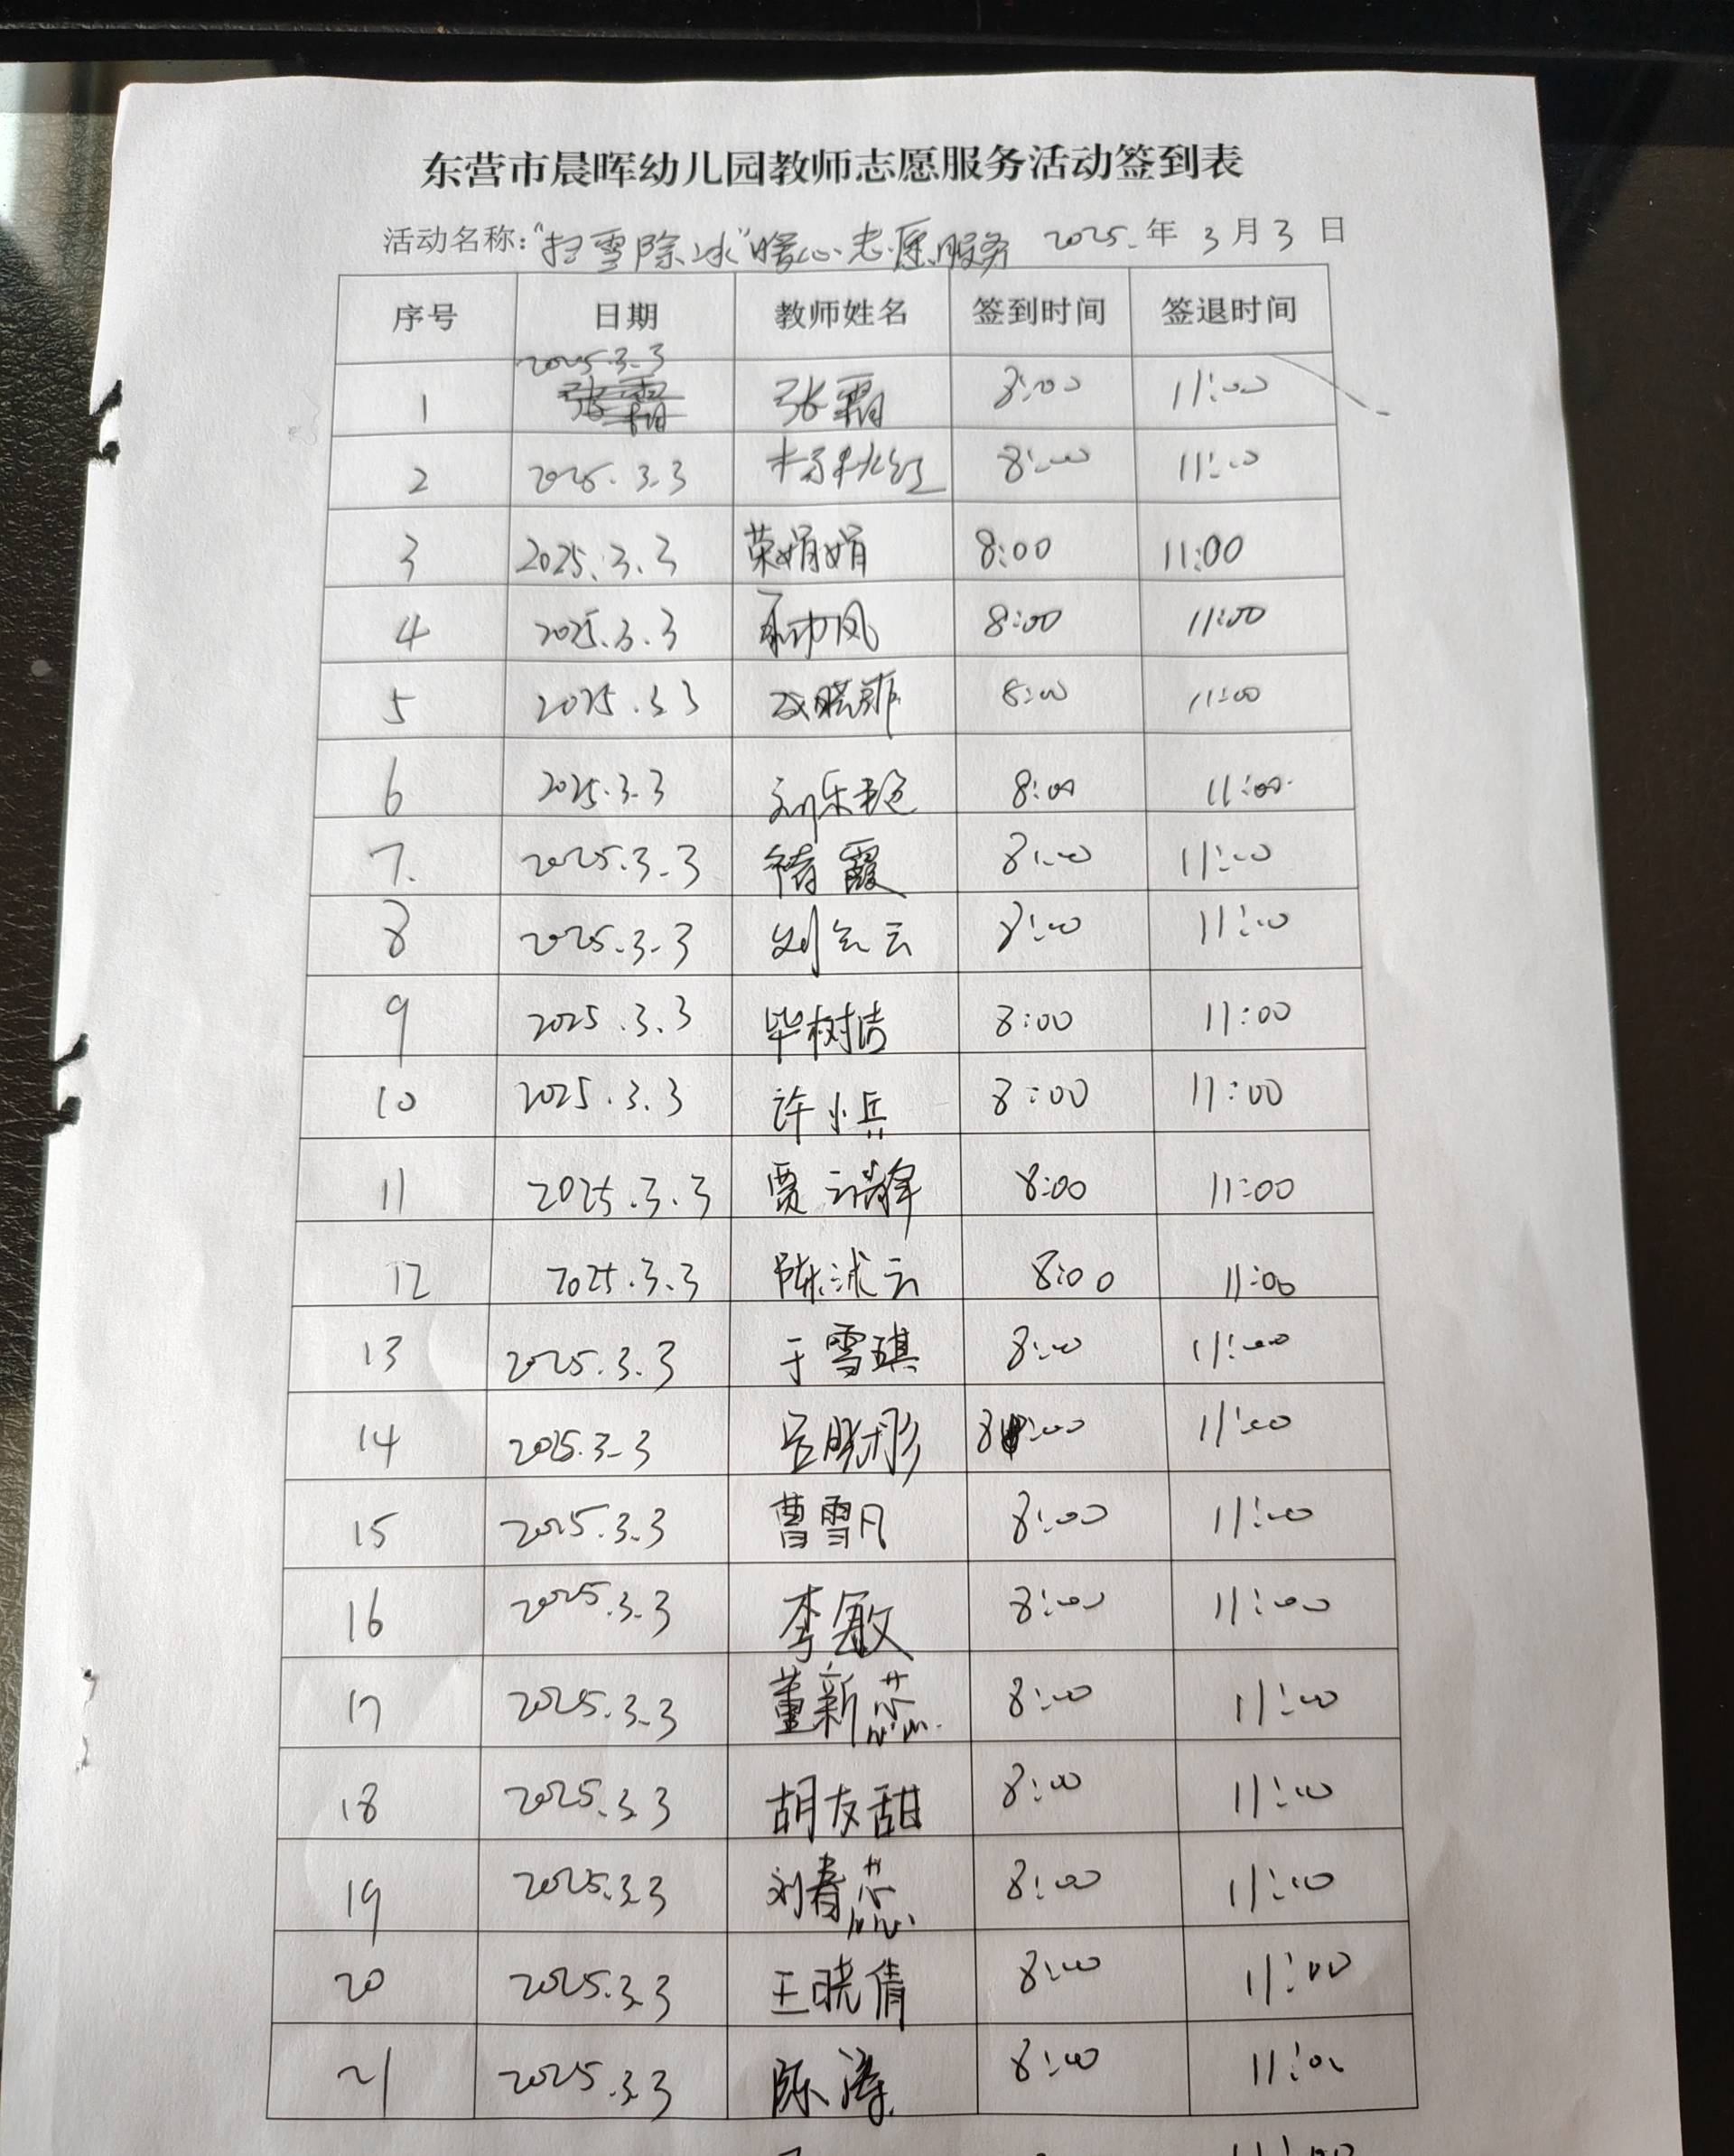 东营市晨晖幼儿园教师志愿服务活动签到表
活动名称:“扫雪除冰”暖心志愿服务 2025.年 3月3日
序号 日期 教师姓名 签到时间 签退时间
1 2025.3.3 张霜 8:00 11:00
2 2025.3.3 杨秋红 8:00 11:00
3 2025.3.3 荣娟娟 8:00 11:00
4 2025.3.3 8:00 11:00
5 2025.3.3 8:00 11:00
6 2025.3.3 刘乐艳 8:00 11:00
7. 2025.3.3 褚霞 8:00 11:00
8 2025.3.3 刘云云 8:00 11:00
9 2025.3.3 毕树洁 8:00 11:00
10 2025.3.3 许小兵 8:00 11:00
11 2025.3.3 贾 8:00 11:00
12 2025.3.3 陈沭云 8:00 11:00
13 2025.3.3 于雪琪 8:00 11:00
14 2025.3.3 8:00 11:00
15 2025.3.3 曹雪凡 8:00 11:00
16 2025.3.3 李敏 8:00 11:00
17 2025.3.3 董新蕊 8:00 11:00
18 2025.3.3 胡友甜 8:00 11:00
19 2025.3.3 刘春蕊 8:00 11:00
20 2025.3.3 王晓倩 8:00 11:00
21 2025.3.3 陈涛 8:00 11:00